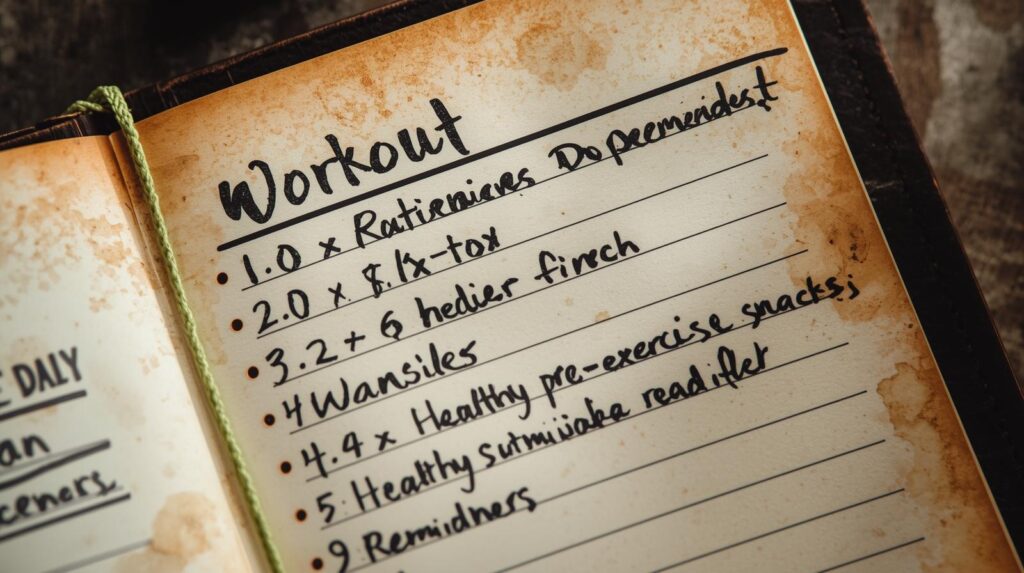 E DALY
an
ceners.
Workout
1.0 x Ratienieres Dopeemendest
2.0 x $.1x-tox
3.2 + 6 hedier finech
4 Wansiles
4.4 x Healthy pre-exercise snacks;
5. Healthy
9 Remiidners